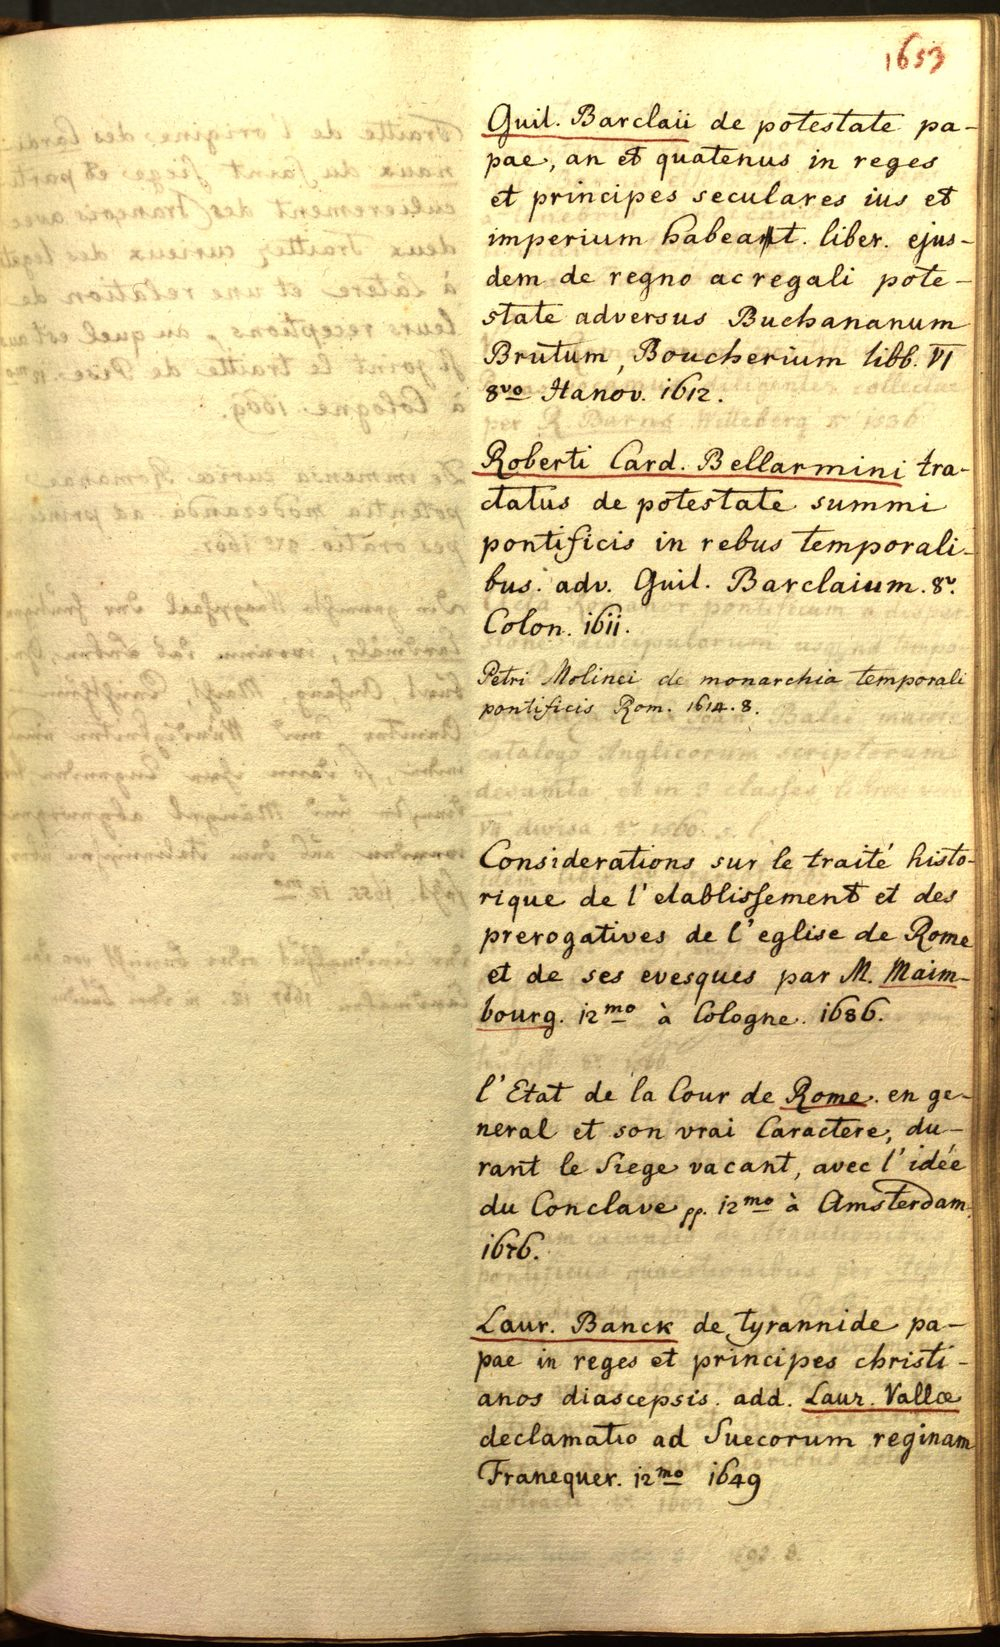 1653
Guil. Barclaii de potestate pa-
pae, an et quatenus in reges
et principes seculares ius et
imperium habeat. liber. ejus-
dem de regno ac regali pote-
state adversus Buchananum
Brutum, Boucherium libb. VI
8vo Hanov. 1612.
Roberti Card. Bellarmini tra-
ctatus de potestate summi
pontificis in rebus temporali-
bus. adv. Guil. Barclaium. 8v.
Colon. 1611.
Petri Molinei de monarchia temporali
pontificis Rom. 1614. 8.
Considerations sur le traité histo-
rique de l'etablissement et des
prerogatives de l'eglise de Rome
et de ses evesques par M. Maim-
bourg. 12mo à Cologne. 1686.
l'Etat de la Cour de Rome. en ge-
neral et son vrai Caractere, du-
rant le Siege vacant, avec l'idée
du Conclave pp. 12mo à Amsterdam.
1676.
Laur. Banck de tyrannide pa-
pae in reges et principes christi-
anos diascepsis. add. Laur. Vallae
declamatio ad Suecorum reginam
Franequer. 12mo 1649